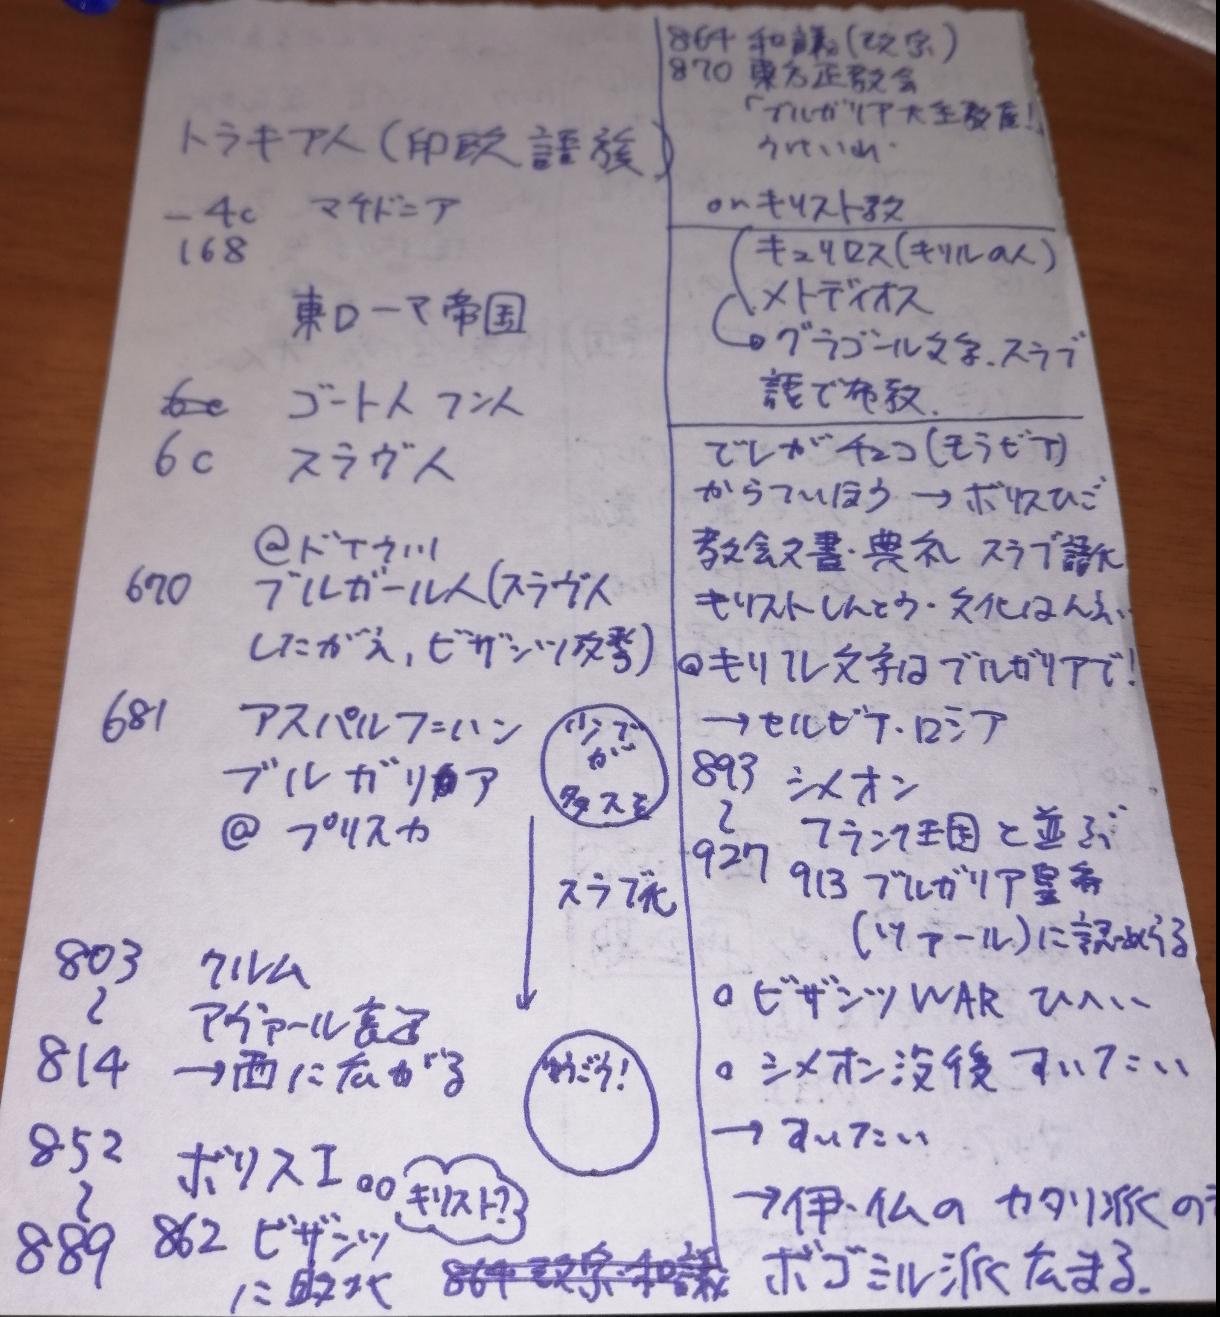 トラキア人(印欧語族)
-4c マケドニア
168
東ローマ帝国
6c ゴート人 フン人
6c スラヴ人
@ドナウ川
670 ブルガール人(スラヴ人
したがえ,ビザンツ攻撃)
681 アスパルフ=ハン
ブルガリア
@ プリスカ
少ブで
が
多スを
スラブ化
803 クルム
~ アヴァール
814 →西に広がる
ゆうごう!
852 ボリスI
~ キリスト?
889 862 ビザンツ
に敗北
864 改宗・和議
864 和議(改宗)
870 東方正教会
「ブルガリア大主教座!」
うけいれ.
on キリスト教
キュリロス(キリルの人)
メトディオス
グラゴール文字.スラブ
語で布教.
でしがチェコ(モラビア)
からついほう → ボリスひご
教会文書・典礼 スラブ語化
キリストしんとう・文化はんえい
@キリル文字はブルガリアで!
→セルビア・ロシア
893 シメオン
~ フランク王国と並ぶ
927 913 ブルガリア皇帝
(ツァール)に認められる
o ビザンツ WAR ひへい
o シメオン没後 すいたい
→ すいたい
→伊・仏の カタリ派の
ボゴミル派 広まる.